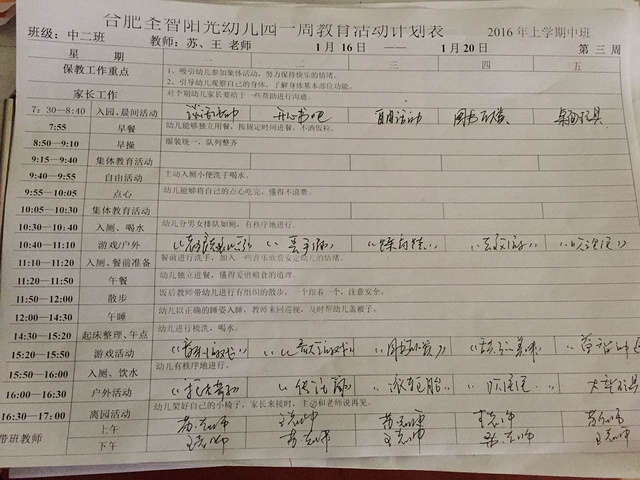 合肥全智阳光幼儿园一周教育活动计划表
班级：中二班 教师：苏、王 老师 1月16日 —— 1月20日 2016年上学期中班
星期 一 二 三 四 五 第三周
保教工作重点 1、吸引幼儿参加集体活动，努力保持快乐的情绪。
2、引导幼儿观察自己的身体，了解身体基本部位功能。
家长工作 对个别幼儿家长要给于一些帮助进行沟通。
7：30—8:40 入园、晨间活动 谈话活动 开心吧 自由活动 桌面玩具
7:55 早餐 幼儿能够独立用餐，按规定时间进餐，不洒饭粒。
8:50—9:10 早操 服装统一，队列整齐
9:15—9:40 集体教育活动
9:40—9:55 自由活动 主动入厕小便洗手喝水。
9:55—10:05 点心 幼儿能够将自己的点心吃完，懂得不浪费。
10:05—10:30 集体教育活动
10:30—10:40 入厕、喝水 幼儿分男女排队如厕，有秩序地进行。
10:40—11:10 游戏/户外
11:10—11:20 入厕、餐前准备 餐前进行洗手，加入一些音乐欣赏安定幼儿的情绪。
11:20—11:50 午餐 幼儿独立进餐，懂得爱惜粮食的道理。
11:50—12:00 散步 饭后教师带幼儿进行有组织的散步，一个跟着一个，注意安全。
12:00—14:30 午睡 幼儿以正确的睡姿入睡，教师来回巡视，及时帮幼儿盖被子。
14:30—15:20 起床整理、午点 幼儿进行梳洗，喝水。
15:20—15:50 游戏活动
15:50—16:00 入厕、饮水 幼儿有秩序地进行。
16:00—16:30 户外活动 大型玩具
16:30—17:00 离园活动 幼儿架好自己的小椅子，家长来接时，主动和老师说再见。
带班教师 上午 苏老师 王老师 苏老师 王老师 苏老师
下午 王老师 苏老师 王老师 苏老师 王老师